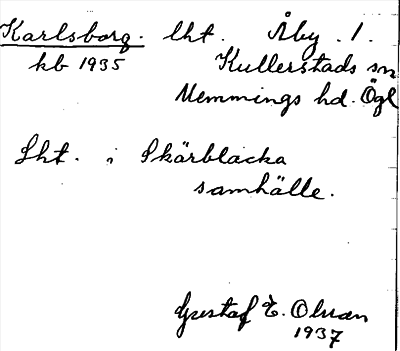 Karlsborg. lht. Åby .1.
kb 1935 Kullerstads sn
Memmings hd. Ögl
Lht. i Skärblacka
samhälle.
Gustaf E. Olson
1937